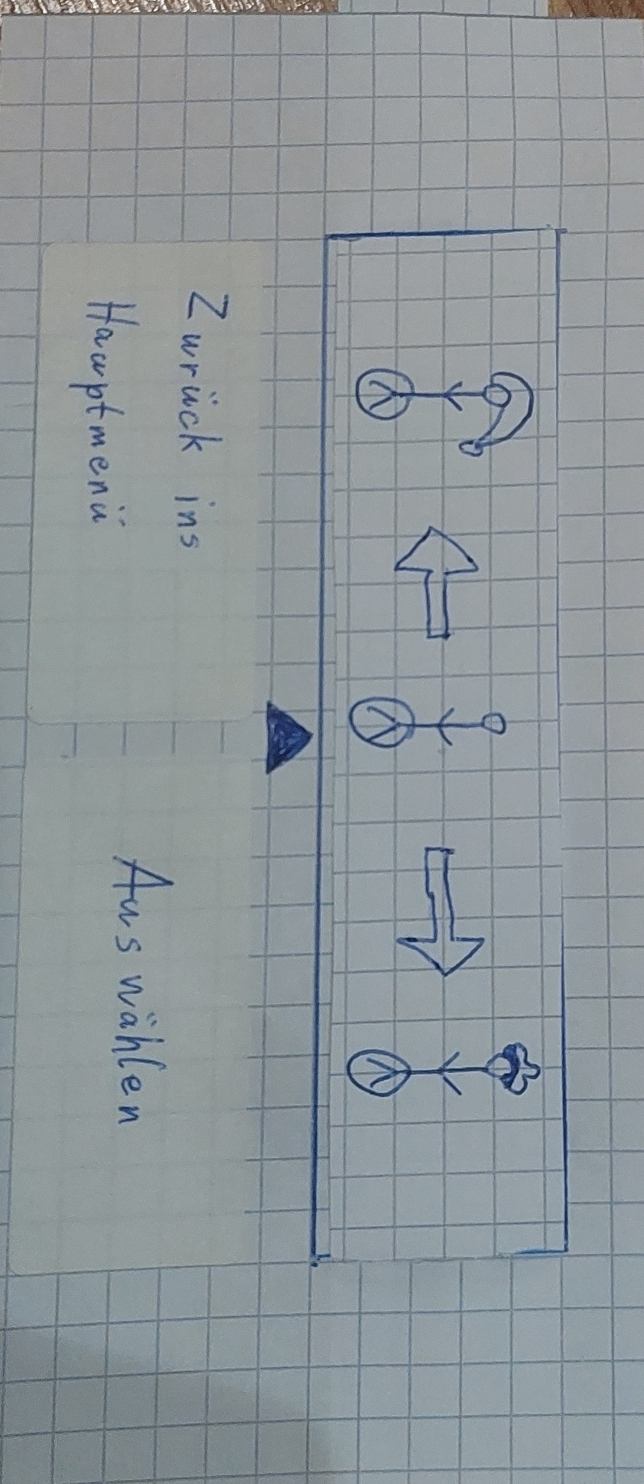 Zurück ins
Hauptmenü
Auswählen